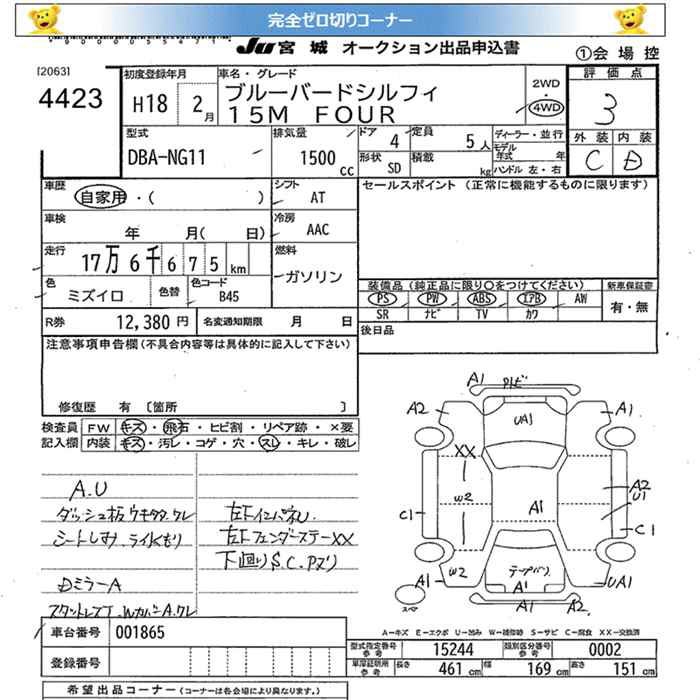 完全ゼロ切りコーナー
JU 宮城 オークション出品申込書
①会場控
[2063]
4423
初度登録年月
H18 2月
車名・グレード
ブルーバードシルフィ
15M FOUR
2WD
・
4WD
評価点
3
外装 内装
C D
型式
DBA-NG11
排気量
1500cc
ドア 4
定員 5人
形状 SD
積載 kg
ディーラー・並行
モデル年式 年
ハンドル 左・右
車歴
自家用・( )
シフト
AT
セールスポイント (正常に機能するものに限ります)
車検
年 月( 日)
冷房
AAC
走行
17万6千675km
燃料
ガソリン
色
ミズイロ
色替
色コード
B45
装備品(純正品に限り○をつけてください)
新車保証書
PS PW ABS エアB AW
SR ナビ TV カワ
有・無
R券 12,380円
名変通知期限 月 日
後日品
注意事項申告欄(不具合内容等は具体的に記入して下さい)
修復歴 有 〔箇所 〕
検査員記入欄
FW キズ・飛石・ヒビ割・リペア跡・×要
内装 キズ・汚レ・コゲ・穴・スレ・キレ・破レ
A.U
ダッシュ板ウキ
シートしみ.ライトくもり
DミラーA
左F インパネU.
左F フェンダーステーXX
下廻りS.C.Pヌリ
A1
トビ
A2
UA1
A1
XX
W2
A1
A2
U1
C1
C1
A1
W2
A1
UA1
スペア
A1
A2
A=キズ E=エクボ U=凹み W=補修跡 S=サビ C=腐食 XX=交換済
車台番号 001865
登録番号
型式指定番号 参考 15244
類別区分番号 参考 0002
車庫証明用 参考
長さ 461cm
幅 169cm
高さ 151cm
希望出品コーナー (コーナーは各会場により異なります。)